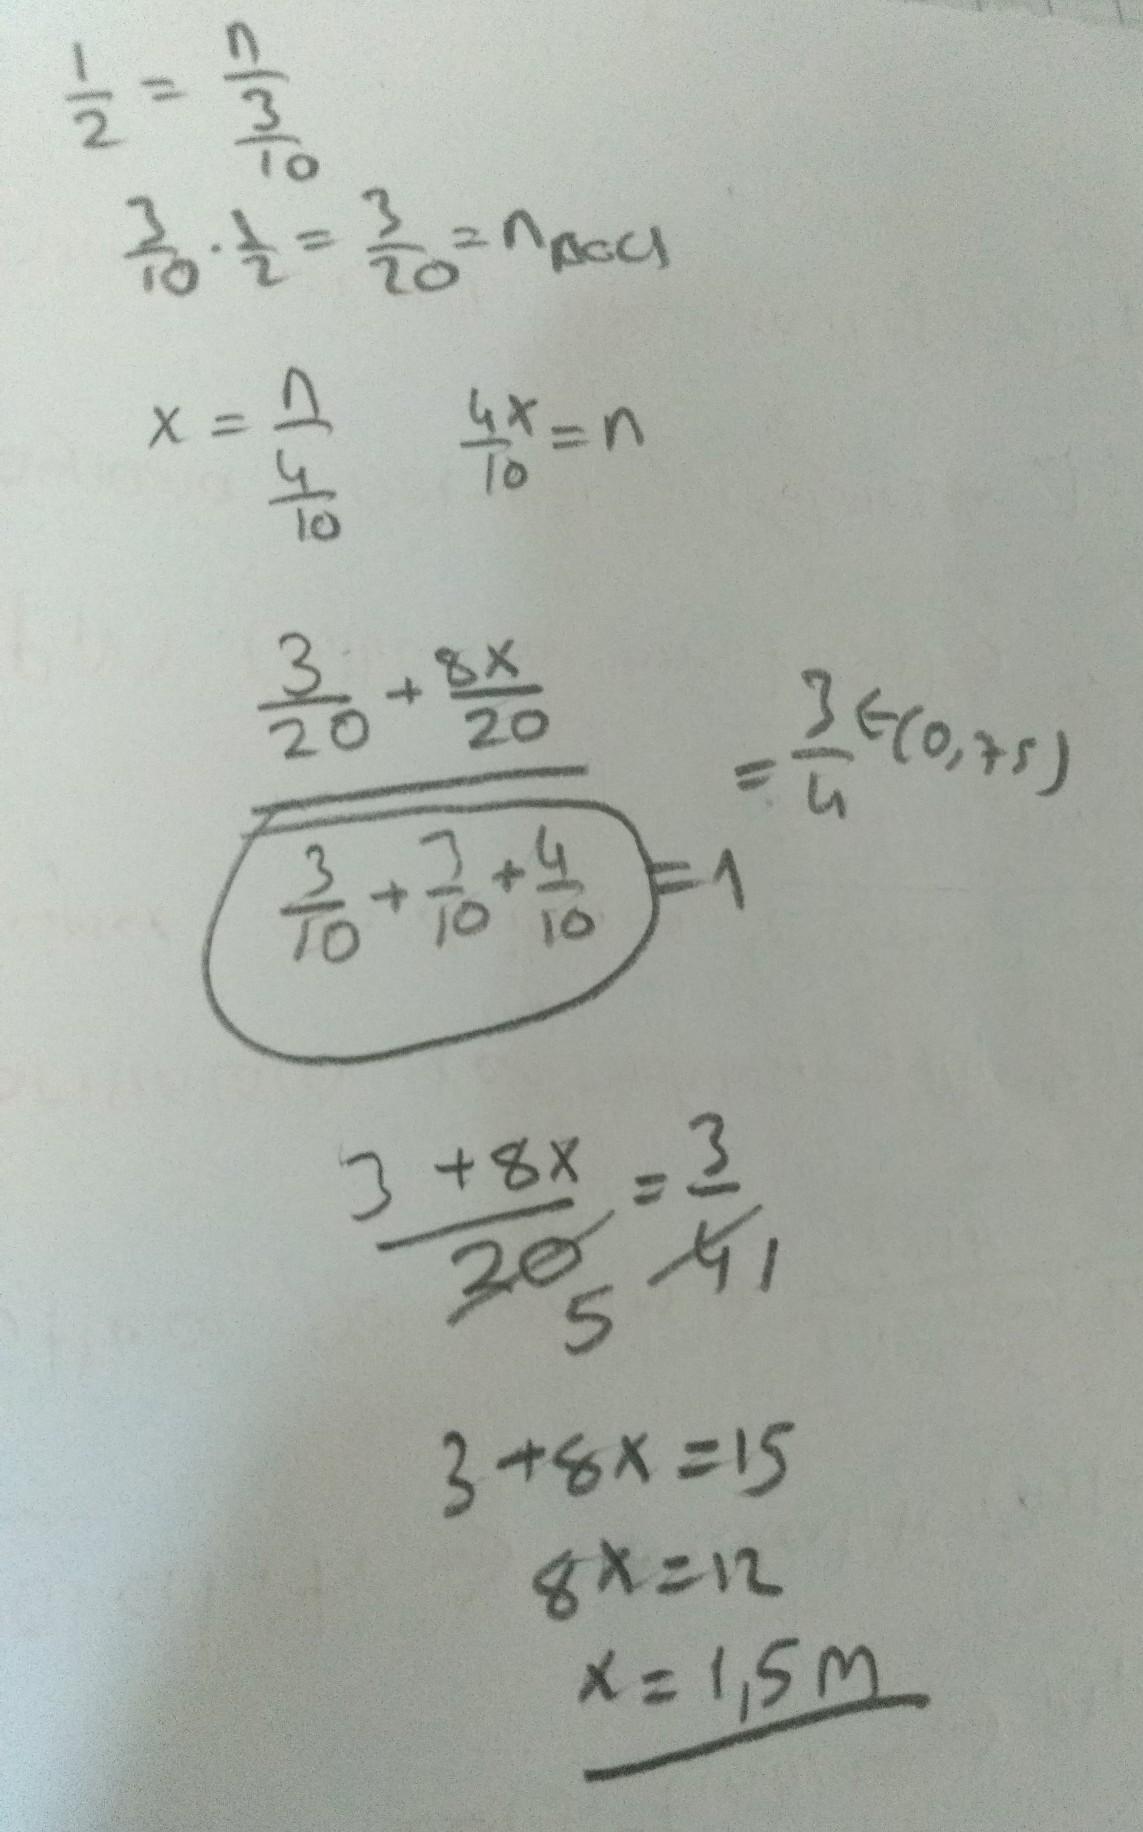 1/2 = n/(3/10)
3/10 · 1/2 = 3/20 = n
x = n/(4/10) 4x/10 = n
(3/20 + 8x/20)/(3/10 + 3/10 + 4/10) = 3/4 (0,75)
= 1
(3 + 8x)/20 = 3/4
5 1
3 + 8x = 15
8x = 12
x = 1,5 M